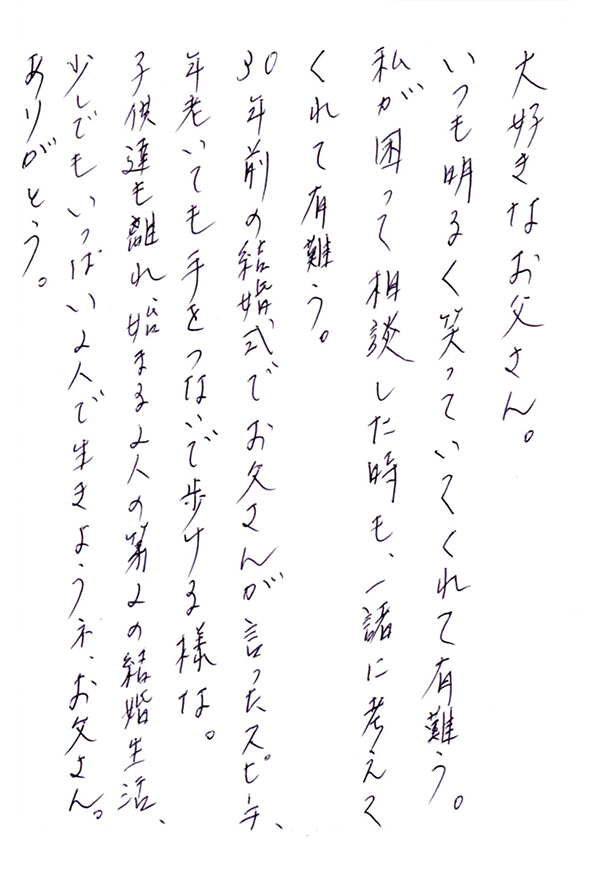 大好きなお父さん。
いつも明るく笑っていてくれて有難う。
私が困って相談した時も、一諸に考えて
くれて有難う。
30年前の結婚式でお父さんが言ったスピーチ、
年老いても手をつないで歩ける様な。
子供達も離れ始まる2人の第2の結婚生活、
少しでもいっぱい2人で生きようネ、お父さん。
ありがとう。